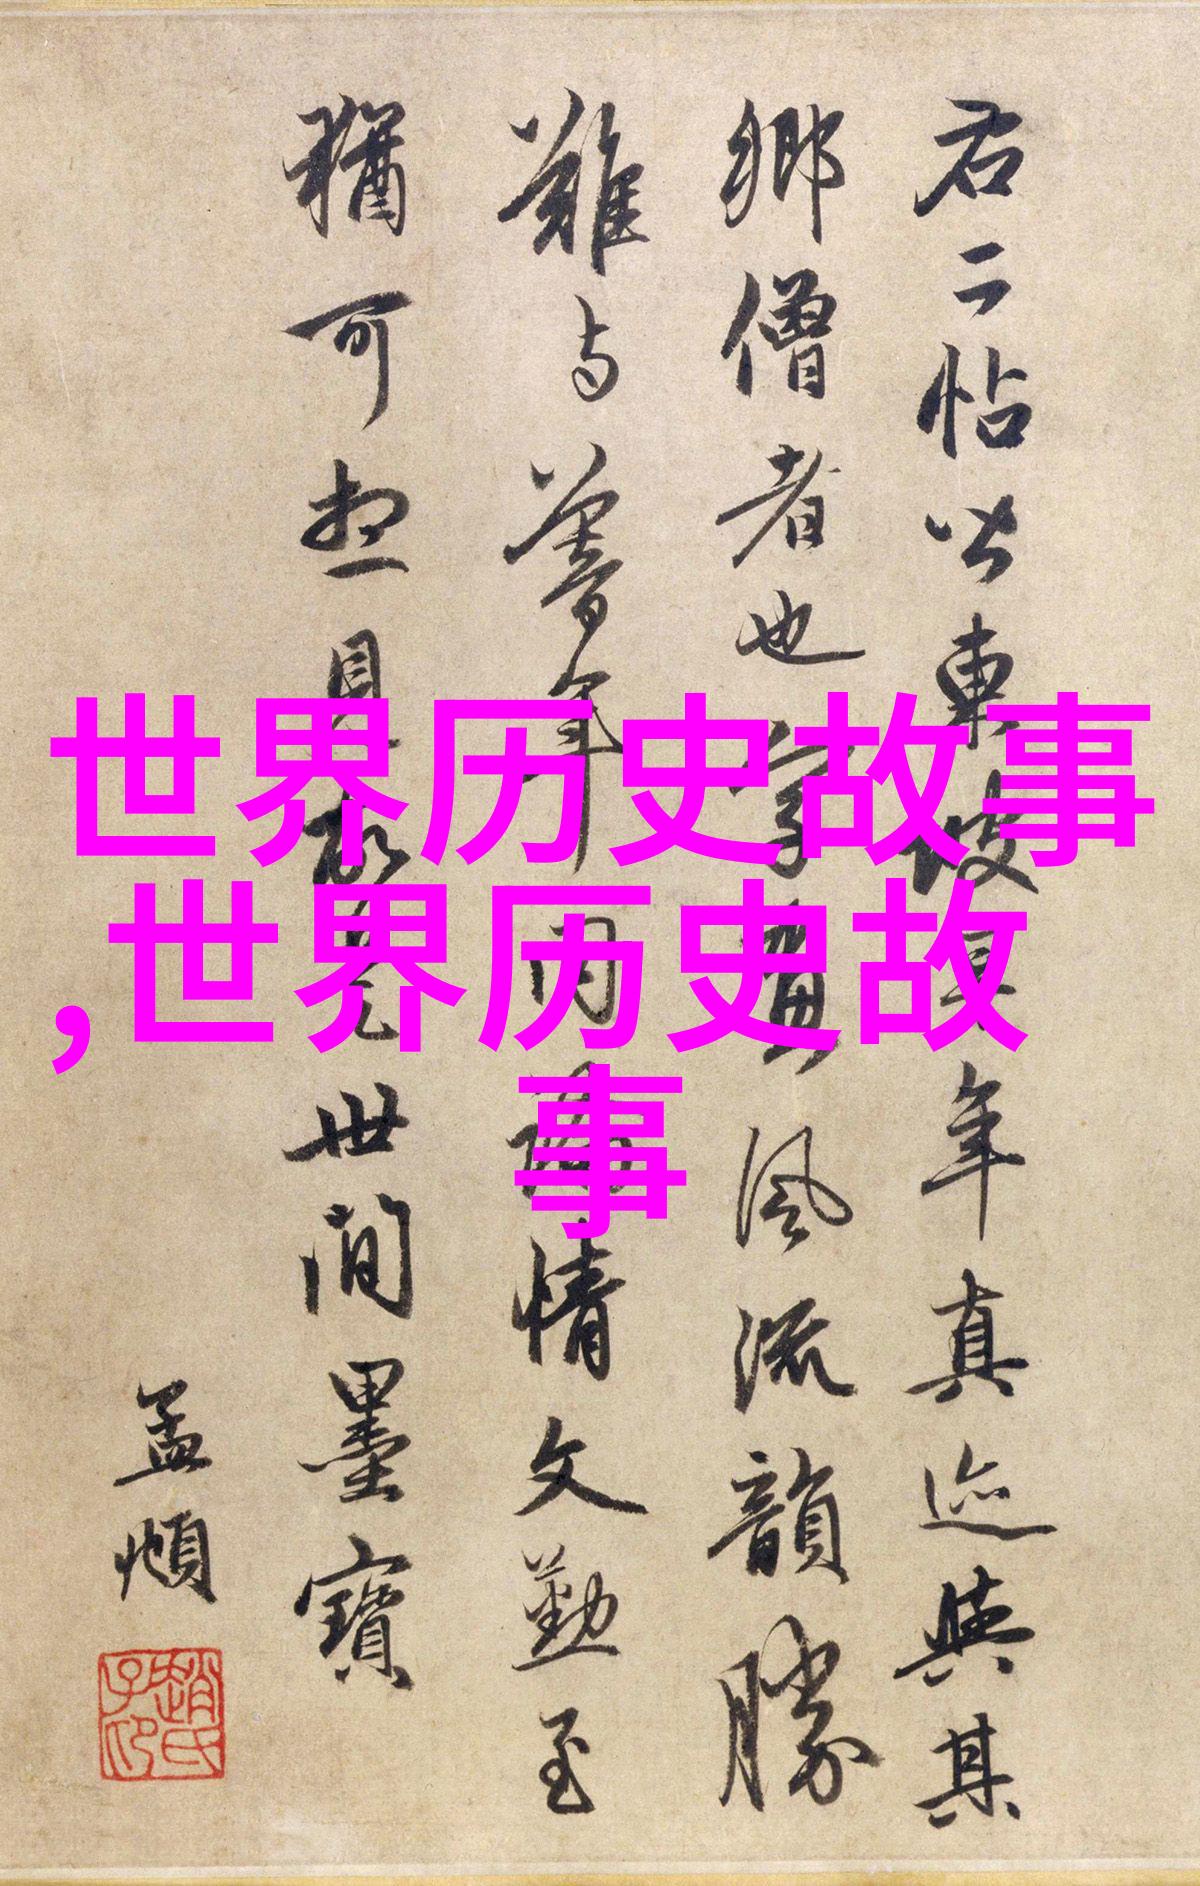 世界历史故事
,世界历史故
事
右二帖皆東坡早年真迹與其
鄉僧者也字畫風流韻勝
難与暮年同論情文勤至
猶可想見故是世間墨寶
孟頫
趙氏子昂